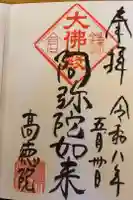 奉拝
令和八年
五月卅日
大佛殿
阿弥陀如来
高徳院